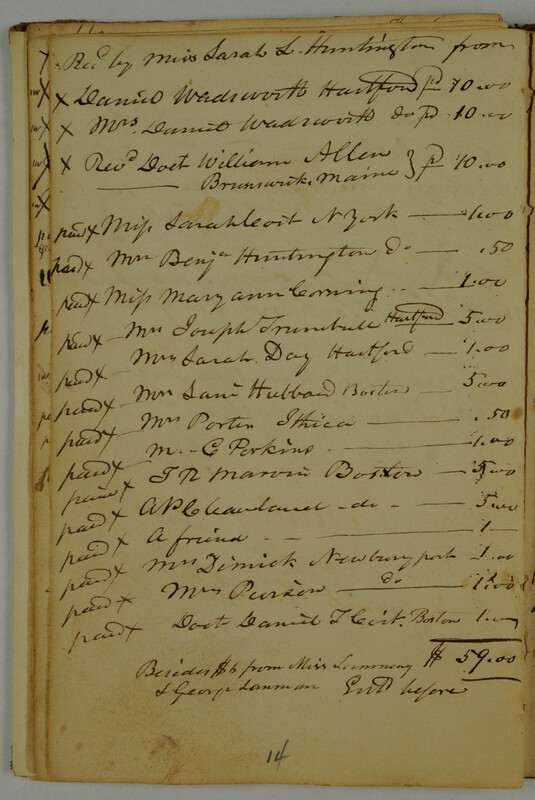 Recd by Miss Sarah L. Huntington from
x Daniel Wadsworth Hartford pd 10.00
x Mrs. Daniel Wadsworth do pd 10.00
x Revd Doct William Allen
Brunswick, Maine } pd 10.00
paid x Miss Sarah Coit N York — 1.00
paid x Mrs Benja Huntington do — .50
paid x Miss Mary ann Corning — 1.00
paid x Mrs Joseph Trumbull Hartford — 5.00
paid x Mrs Sarah Day Hartford — 1.00
paid x Mrs Saml Hubbard Boston — 5.00
paid x Mrs Porter Ithica — .50
paid x M. C Perkins — 1.00
paid x T R Marvin Boston — 5.00
paid x A P Cleaveland - do - — 5.00
paid x A friend - — 1 —
paid x Mrs Dimick Newburyport 1.00
paid x Mrs Pearson — do — 1.00
paid x Doct Daniel T Coit. Boston 1.—
$ 59.00
Besides $6 from Miss
& George Lanman Entd before
14